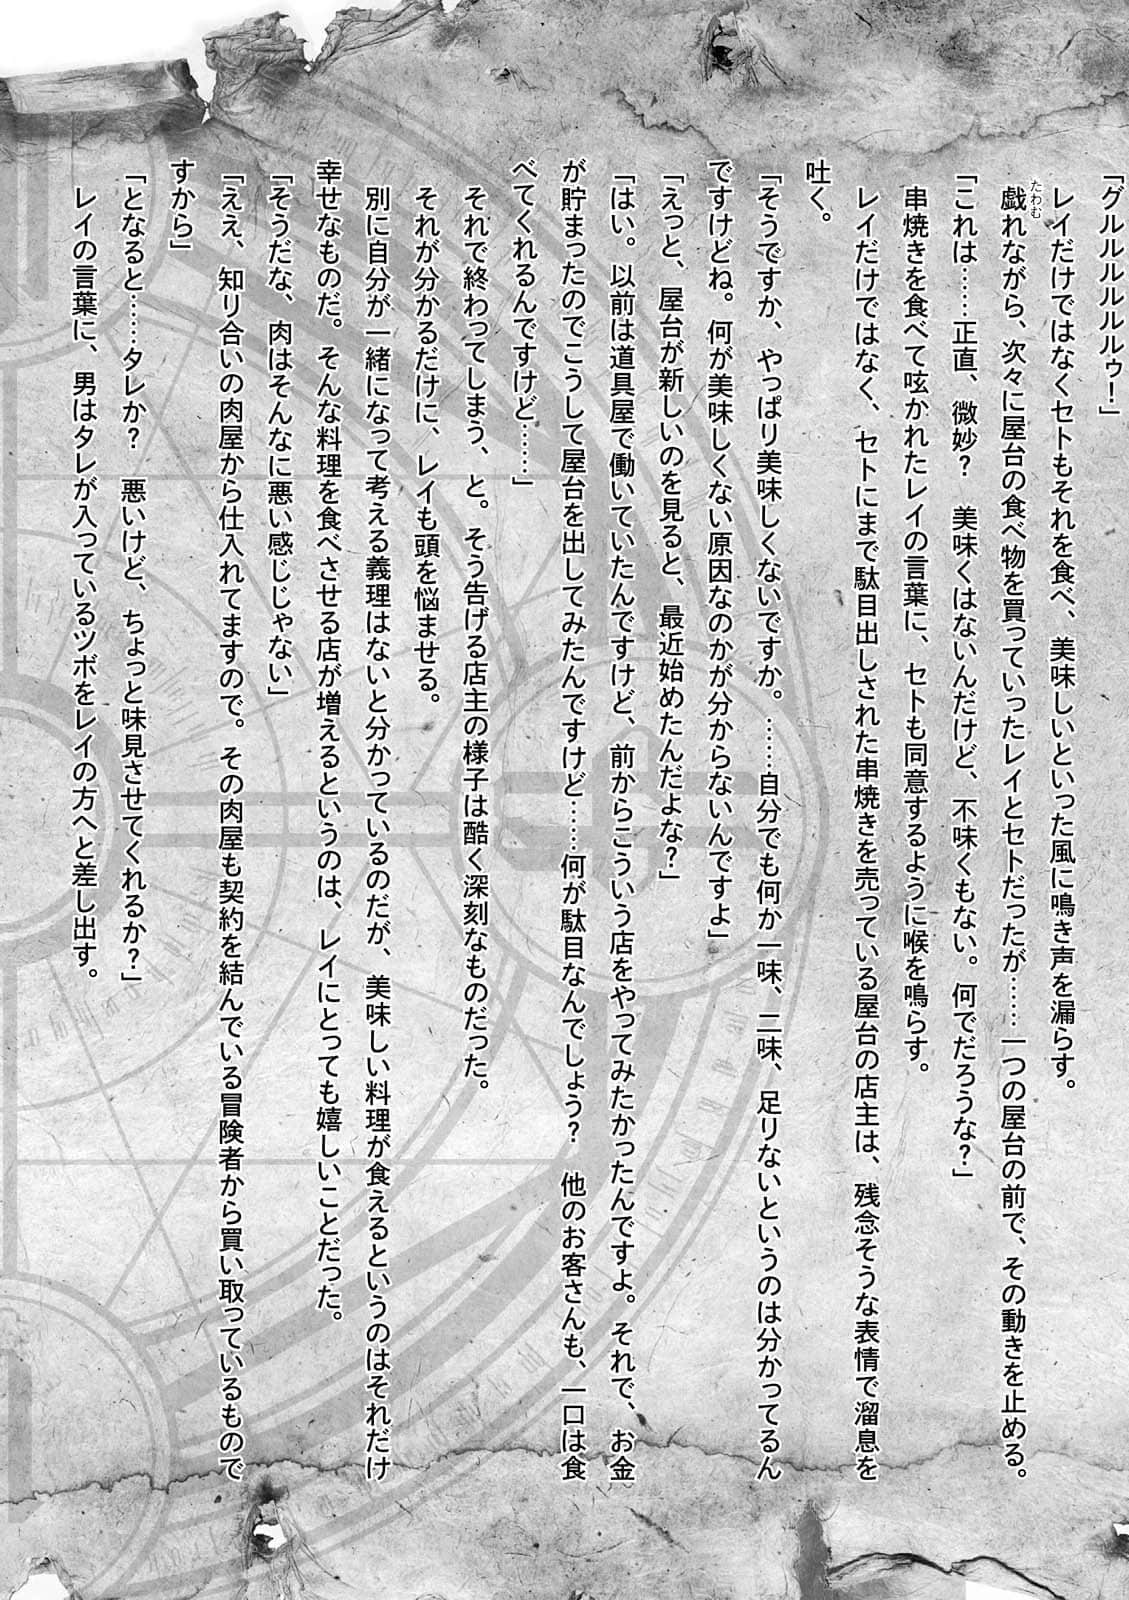 「グルルルルルゥ！」
　レイだけではなくセトもそれを食べ、美味しいといった風に鳴き声を漏らす。
　戯れながら、次々に屋台の食べ物を買っていったレイとセトだったが……一つの屋台の前で、その動きを止める。
たわむ
「これは……正直、微妙？　美味くはないんだけど、不味くもない。何でだろうな？」
　串焼きを食べて呟かれたレイの言葉に、セトも同意するように喉を鳴らす。
　レイだけではなく、セトにまで駄目出しされた串焼きを売っている屋台の店主は、残念そうな表情で溜息を
吐く。
「そうですか、やっぱり美味しくないですか。……自分でも何か一味、二味、足りないというのは分かってるん
ですけどね。何が美味しくない原因なのかが分からないんですよ」
「えっと、屋台が新しいのを見ると、最近始めたんだよな？」
「はい。以前は道具屋で働いていたんですけど、前からこういう店をやってみたかったんですよ。それで、お金
が貯まったのでこうして屋台を出してみたんですけど……何が駄目なんでしょう？　他のお客さんも、一口は食
べてくれるんですけど……」
　それで終わってしまう、と。そう告げる店主の様子は酷く深刻なものだった。
　それが分かるだけに、レイも頭を悩ませる。
　別に自分が一緒になって考える義理はないと分かっているのだが、美味しい料理が食えるというのはそれだけ
幸せなものだ。そんな料理を食べさせる店が増えるというのは、レイにとっても嬉しいことだった。
「そうだな、肉はそんなに悪い感じじゃない」
「ええ、知り合いの肉屋から仕入れてますので。その肉屋も契約を結んでいる冒険者から買い取っているもので
すから」
「となると……タレか？　悪いけど、ちょっと味見させてくれるか？」
　レイの言葉に、男はタレが入っているツボをレイの方へと差し出す。